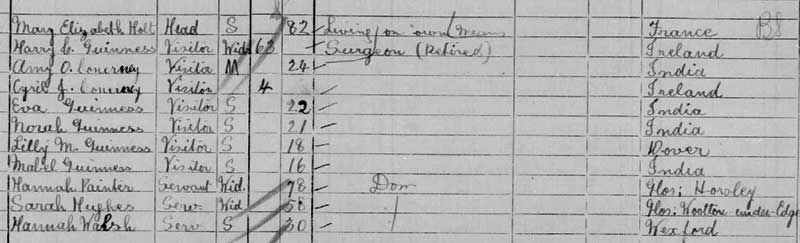 Mary Elizabeth Holt Head S 82 Living on own Means France BS
Harry C. Guinness Visitor Wid 63 Surgeon (Retired) Ireland
Amy O. Visitor M 24 India
Cyril J. Visitor 4 Ireland
Eva Guinness Visitor S 22 India
Norah Guinness Visitor S 21 India
Lilly M. Guinness Visitor S 18 Dover
Mabel Guinness Visitor S 16 India
Hannah Painter Servant Wid. 78 Dom Glos; Horsley
Sarah Hughes Serv. Wid 58 Glos; Wootton under-Edge
Hannah Walsh Serv S 30 Wexford